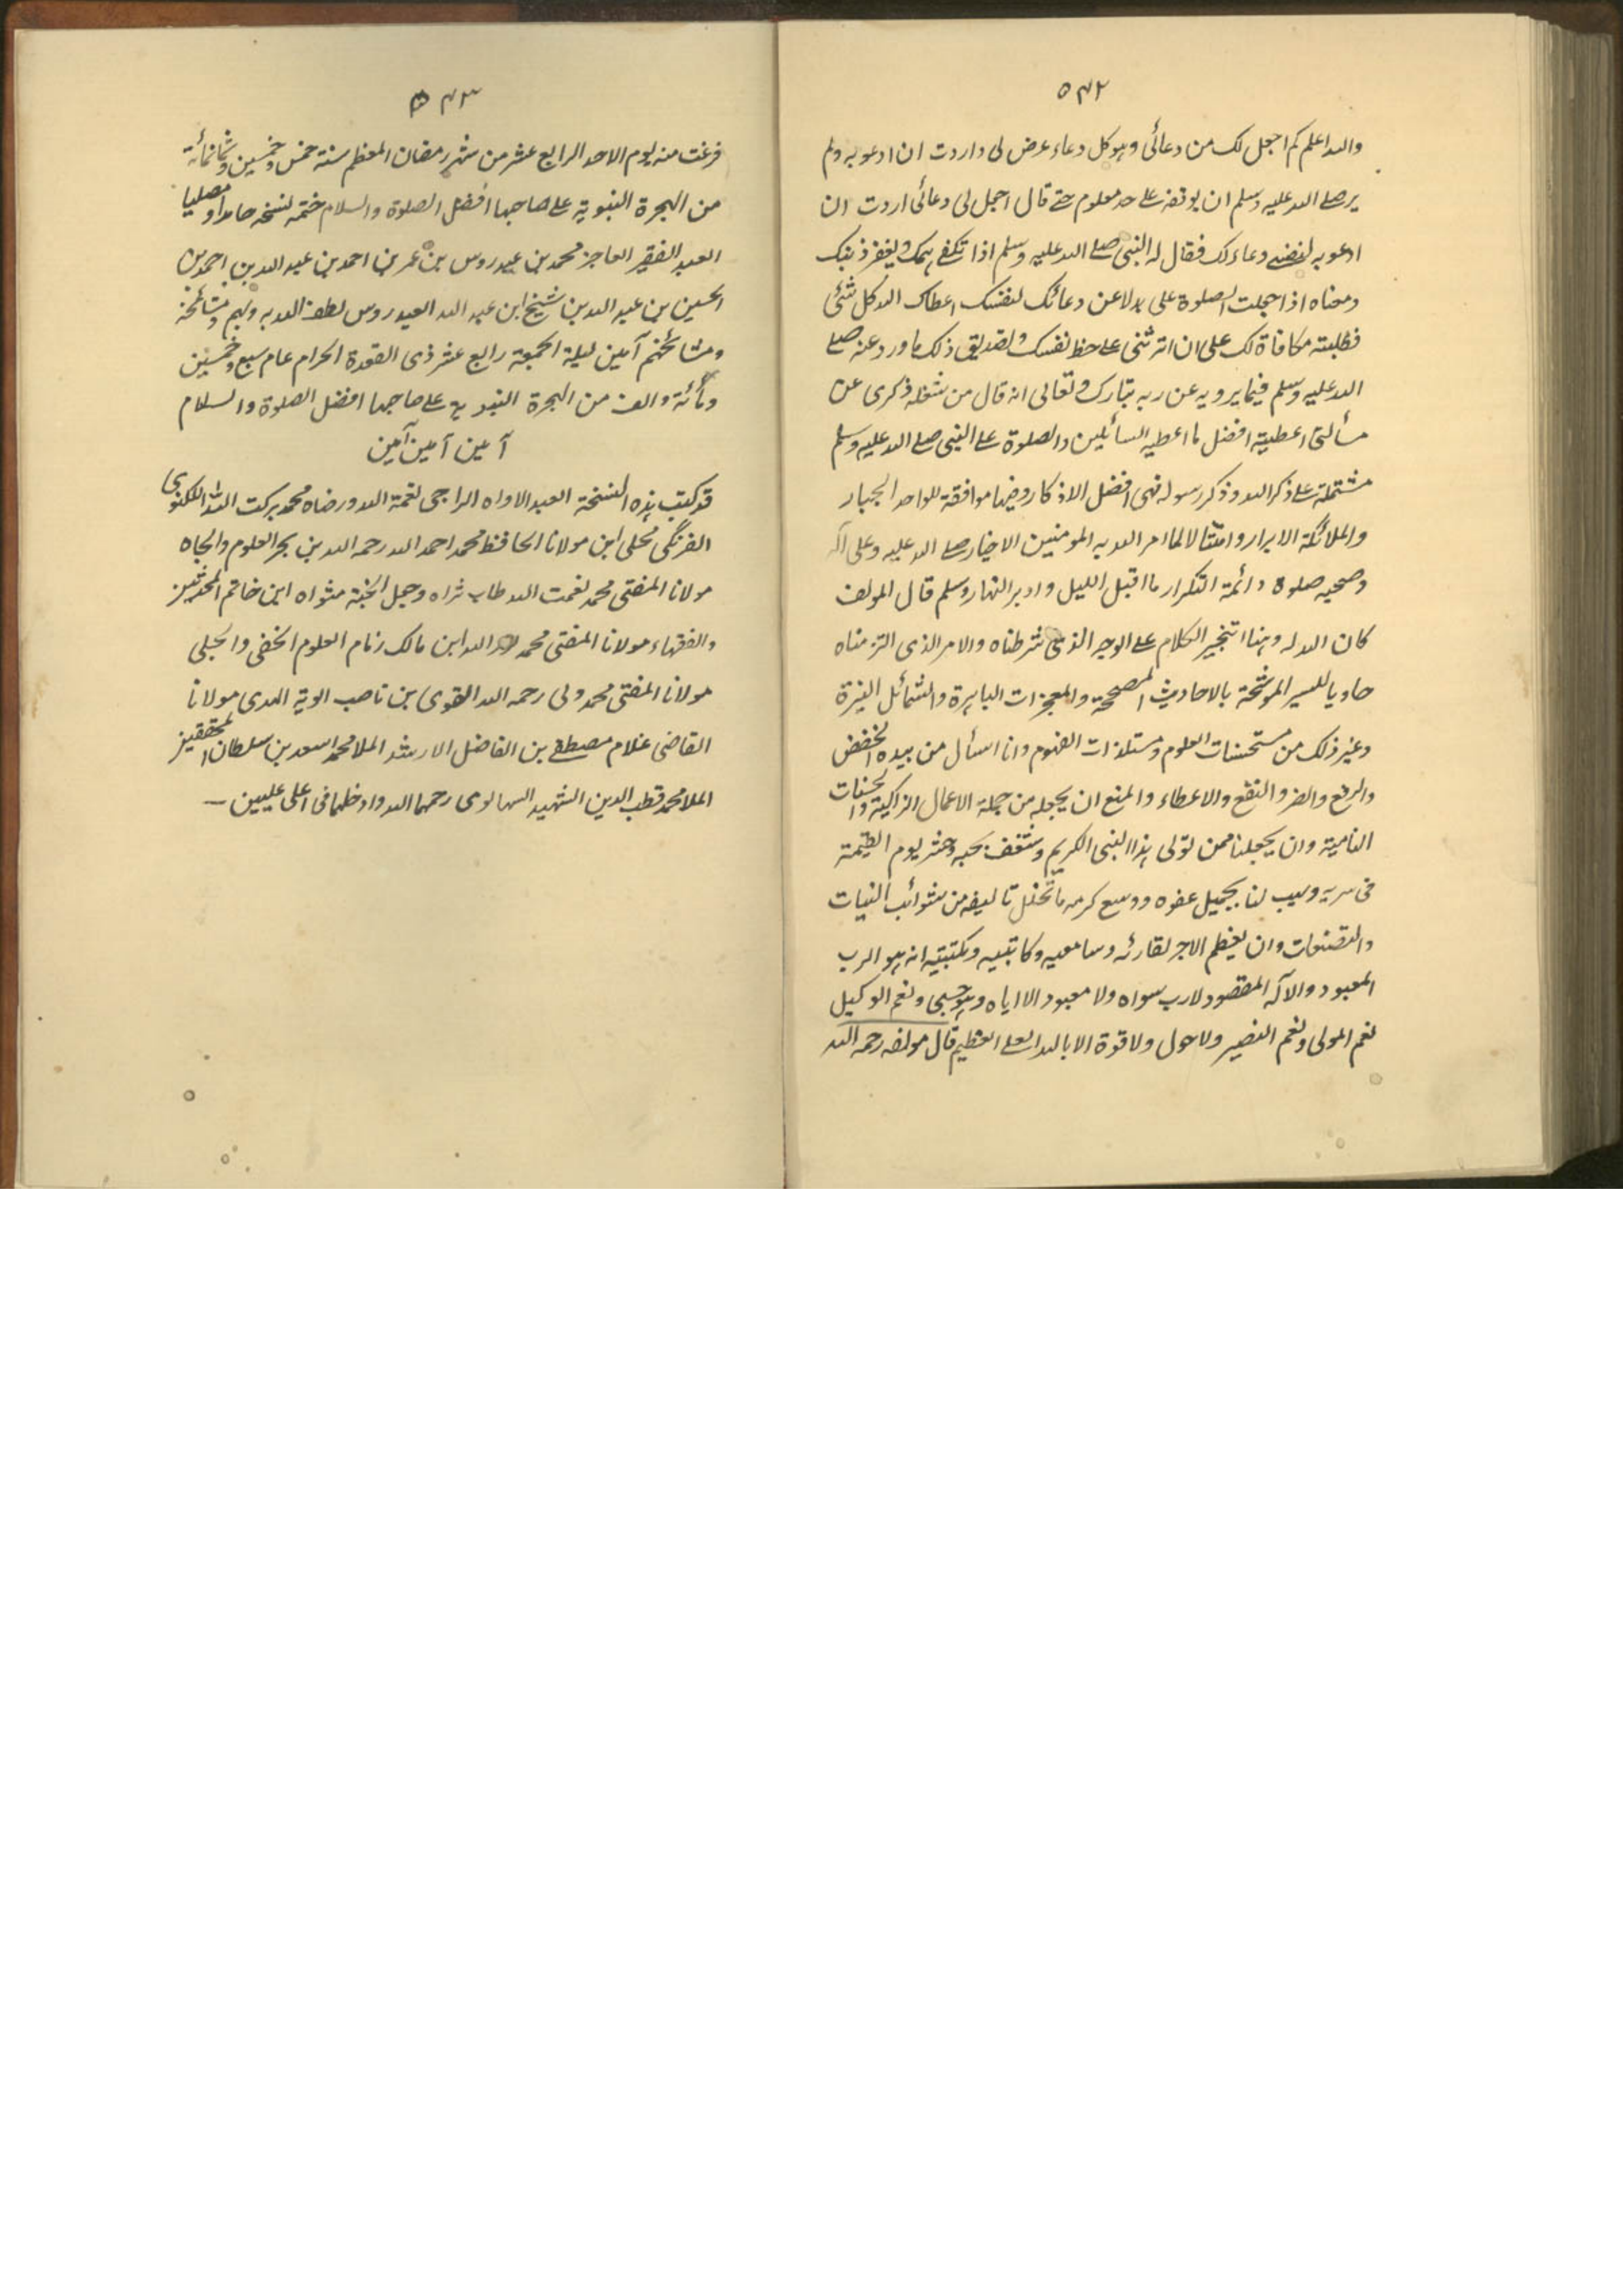 ۵۴۲
والله اعلم كم اجعل لك من دعائى وهو كل دعاء عرض لى واردت ان ادعو به ولم
ير صلے الله عليه وسلم ان يوقفه علے حد معلوم حتے قال اجعل لى دعائى اردت ان
ادعو به لنفسے دعاء لك فقال له النبى صلے الله عليه وسلم اذا تكفے همك و يغفر ذنبك
ومعناه اذا جعلت الصلوة على بدلا عن دعائك لنفسك اعطاك الله كل شئى
فطلبته مكافاة لك على ان اثرتنى علے حظ نفسك ولتصديق ذلك ما ورد عنه صلے
الله عليه وسلم فيما يرويه عن ربه تبارك و تعالى انه قال من شغله ذكرى عن
مسألتى اعطيته افضل ما اعطيه السائلين والصلوة علے النبى صلے الله عليه وسلم
مشتملة علے ذكر الله وذكر رسوله فهى افضل الاذكار وفيها موافقة للواحد الجبار
والملائكة الابرار وامتثالا لما امر الله به المومنين الاخيار صلے الله عليه وعلى آله
وصحبه صلوة دائمة التكرار ما اقبل الليل وادبر النهار وسلم قال المولف
كان الله له وهنا انتجز الكلام علے الوجه الذى شرطناه والامر الذى التزمناه
حاويا للسير الموشحة بالاحاديث المصححة والمعجزات الباهرة والشمائل النيرة
وغير ذلك من مستحسنات العلوم ومستلذات الفهوم وانا اسأل من بيده الخفض
والرفع والضر والنفع والاعطاء والمنع ان يجعله من جملة الاعمال الزاكية والحسنات
النامية وان يجعلنا ممن تولى هذا النبى الكريم وشغف بحبه وحشر يوم القيمة
فى سربه ويهب لنا بجميل عفوه ووسع كرمه ما تخلل تاليفه من شوائب النيات
والتصنعات وان يعظم الاجر لقارئه وسامعيه وكاتبيه ومكتبيه انه هو الرب
المعبود والآله المقصود لا رب سواه ولا معبود الا اياه وهو حسبى ونعم الوكيل
نعم المولى ونعم النصير ولا حول ولا قوة الا بالله العلے العظيم قال مولفه رحمه الله
۵۴۳
فرغت منه يوم الاحد الرابع عشر من شهر رمضان المعظم سنة خمس وخمسين وثمانمائة
من الهجرة النبوية علے صاحبها افضل الصلوة والسلام ختمه لنسخه حامدا ومصليا
العبد الفقير العاجز محمد بن عيدروس بن عمر بن احمد بن عبد الله بن احمد بن
الحسين بن عبد الله بن شيخ ابن عبد الله العيدروس لطف الله به وبهم ومشائخه
ومشائخهم آمين ليلة الجمعة رابع عشر ذى القعدة الحرام عام سبع وخمسين
ومائة والف من الهجرة النبوية علے صاحبها افضل الصلوة والسلام
آمين آمين آمين
قد كتب هذه النسخة العبد الاواه الراجى نعمة الله ورضاه محمد بركت الله اللكنوى
الفرنگى محلى ابن مولانا الحافظ محمد احمد الله رحمه الله بن بحر العلوم والجاه
مولانا المفتى محمد نعمت الله طاب ثراه وجعل الجنة مثواه ابن خاتم المحدثين
والفقهاء مولانا المفتى محمد الله ابن مالك زمام العلوم الخفى والجلى
مولانا المفتى محمد ولى رحمه الله القوى بن ناصب الوية الهدى مولانا
القاضى غلام مصطفے بن الفاضل الارشد الملا محمد اسعد بن سلطان المحققين
الملا محمد قطب الدين الشهيد السهالوى رحمهما الله وادخلهما فى اعلى عليين